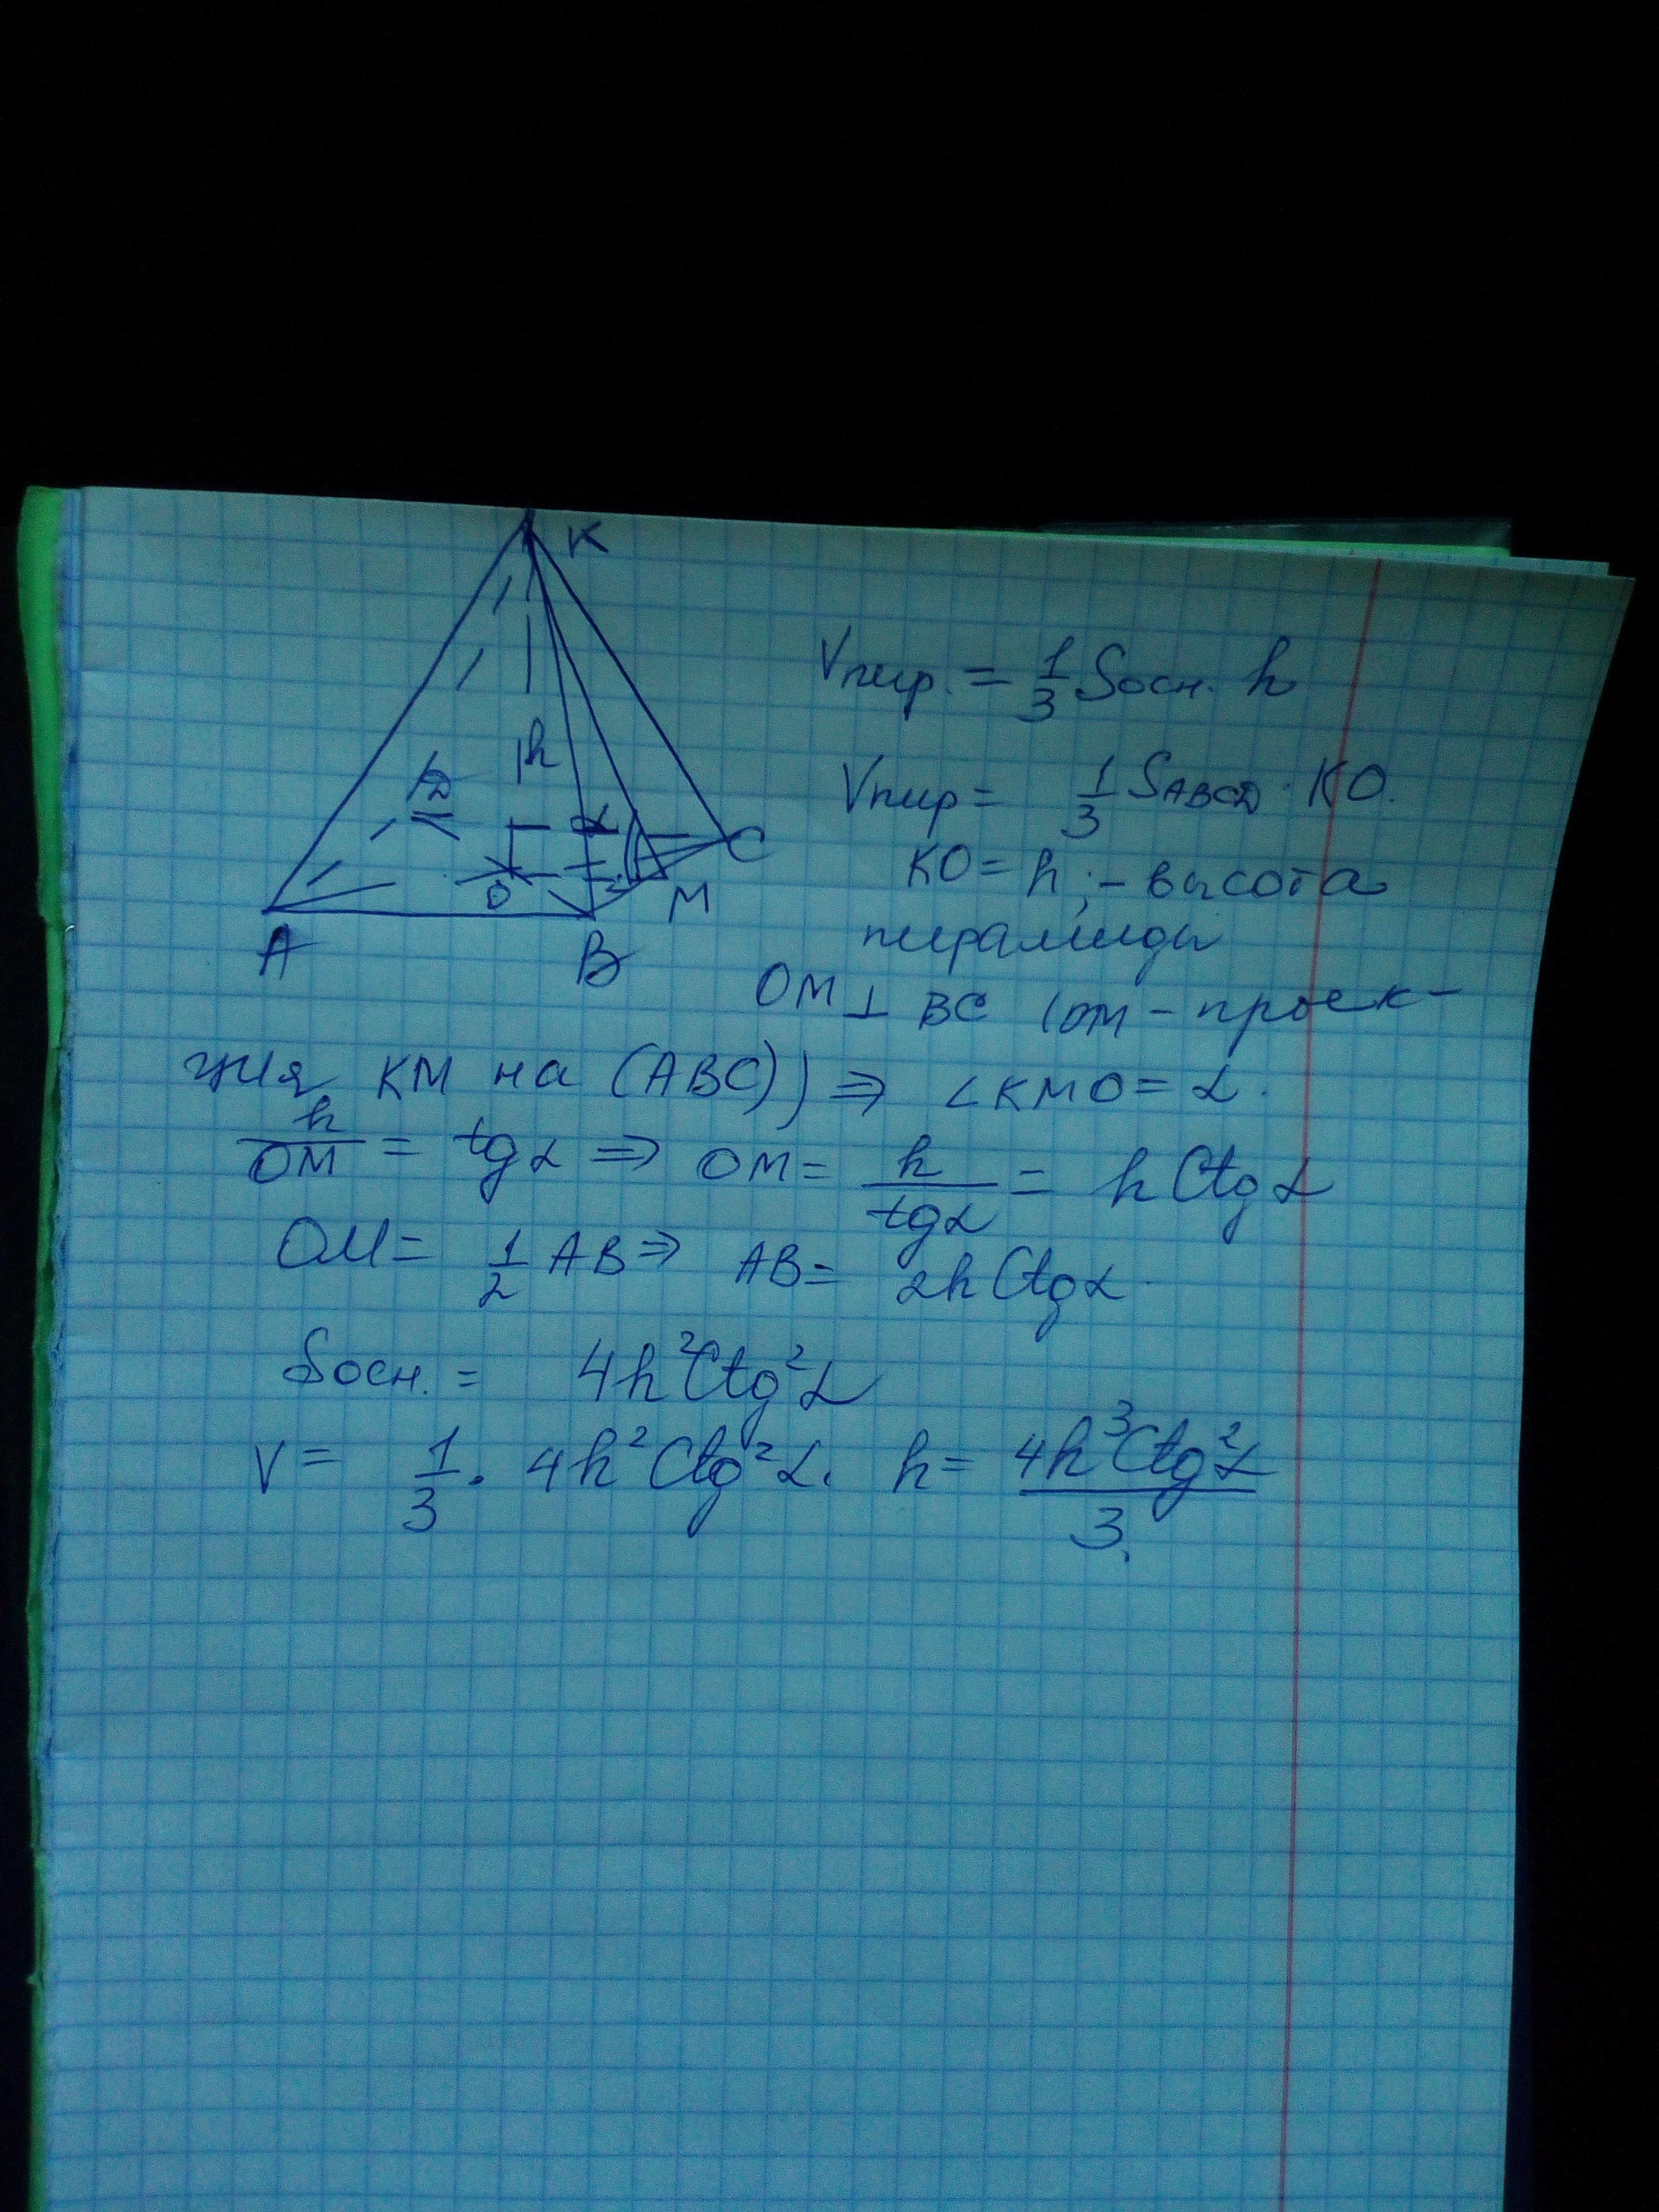 K
Vпир. = 1/3 Sосн. h
h
D
Vпир = 1/3 SABCD · KO.
α
C
KO = h; – высота
O
M
пирамиды
A
B
OM ⊥ BC (OM – проек-
ция KM на (ABC)) ⇒ ∠KMO = α.
h/OM = tgα ⇒ OM = h/tgα = h Ctgα
OM = 1/2 AB ⇒ AB = 2h Ctgα.
Sосн. = 4h²Ctg²α
V = 1/3 · 4h²Ctg²α · h = 4h³Ctg²α/3.